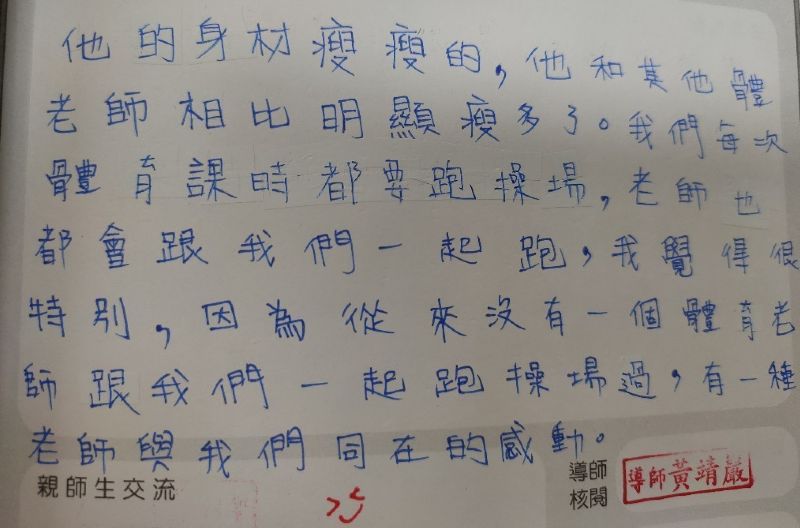 他的身材瘦瘦的,他和其他體
老師相比明顯瘦多了。我們每次
體育課時都要跑操場,老師也
都會跟我們一起跑,我覺得很
特別,因為從來沒有一個體育老
師跟我們一起跑操場過,有一種
老師與我們同在的感動。
親師生交流
導師核閱
導師黃靖嚴